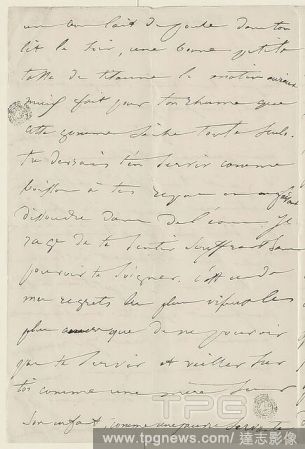 un bon lait de poule dans ton
lit le soir, une bonne petite
tasse de tisane le matin aurait
mieux fait pour ton rhume que
cette gomme sèche toute seule.
tu devrais t'en servir comme
boisson à tes repas en la faisant
dissoudre dans de l'eau. Je
rage de te sentir souffrant sans
pouvoir te soigner. c'est un de
mes regrets les plus vifs et les
plus amers que de ne pouvoir
pas te servir et veiller sur
toi comme une mère sur
son enfant, comme une pauvre servante
TPG
www.tpgnews.com/達志影像